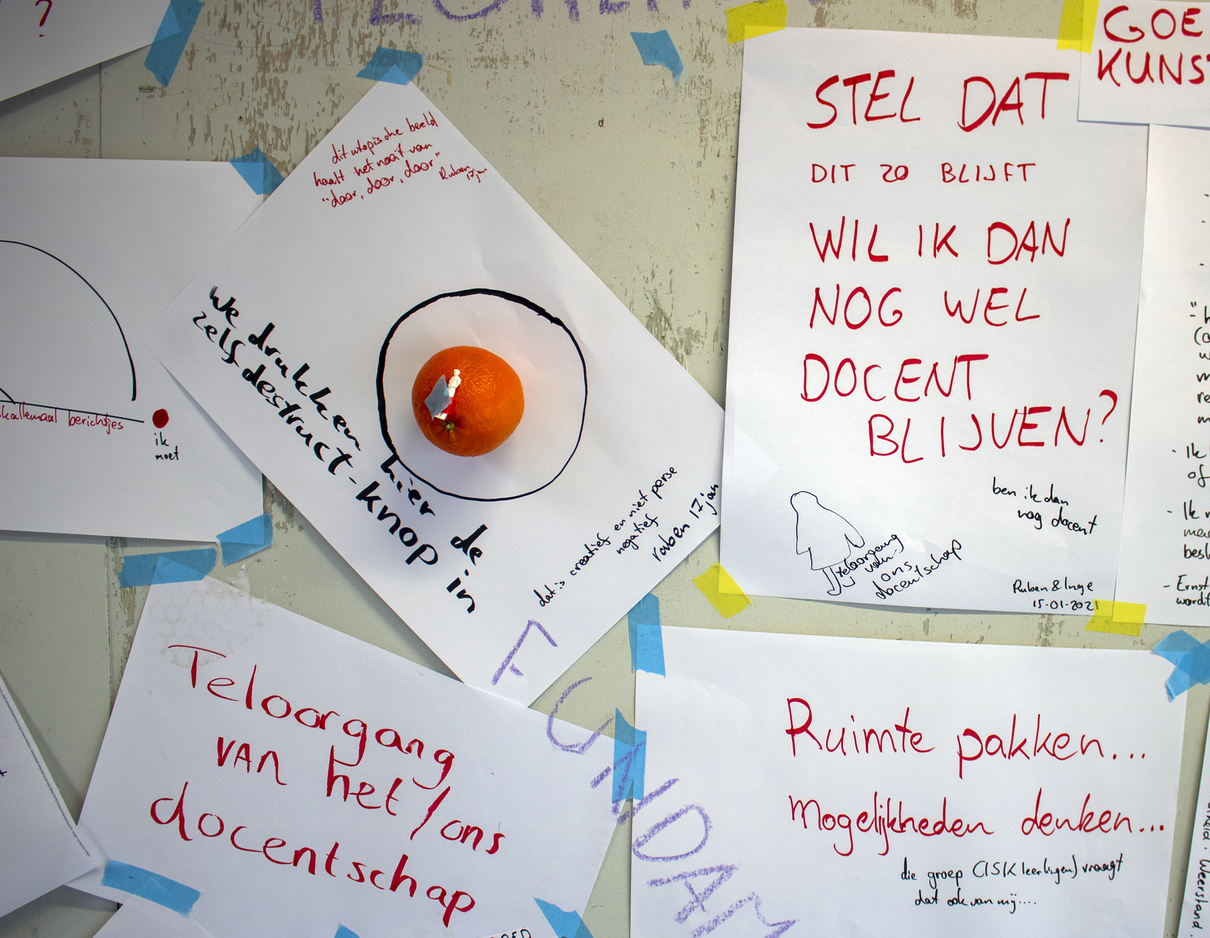 ?
GOE
KUNST
dit utopische beeld
haalt het nooit van
"door, door, door"
Ruben
17 jan
We drukken hier de
zelf destruct-knop in
dat is creatief en niet perse
negatief
ruben 17 jan
allemaal berichtjes
ik
moet
STEL DAT
DIT ZO BLIJFT
WIL IK DAN
NOG WEL
DOCENT
BLIJVEN?
ben ik dan
nog docent
teloorgang
van
ons
docentschap
Ruben & Inge
15-01-2021
- Ik
of
- Ik
besl
- Ernst
wordt
Teloorgang
van het/ons
docentschap
FUNDAM
Ruimte pakken...
mogelijkheden denken...
die groep (ISK leerlingen) vraagt
dat ook van mij....
Weerstand